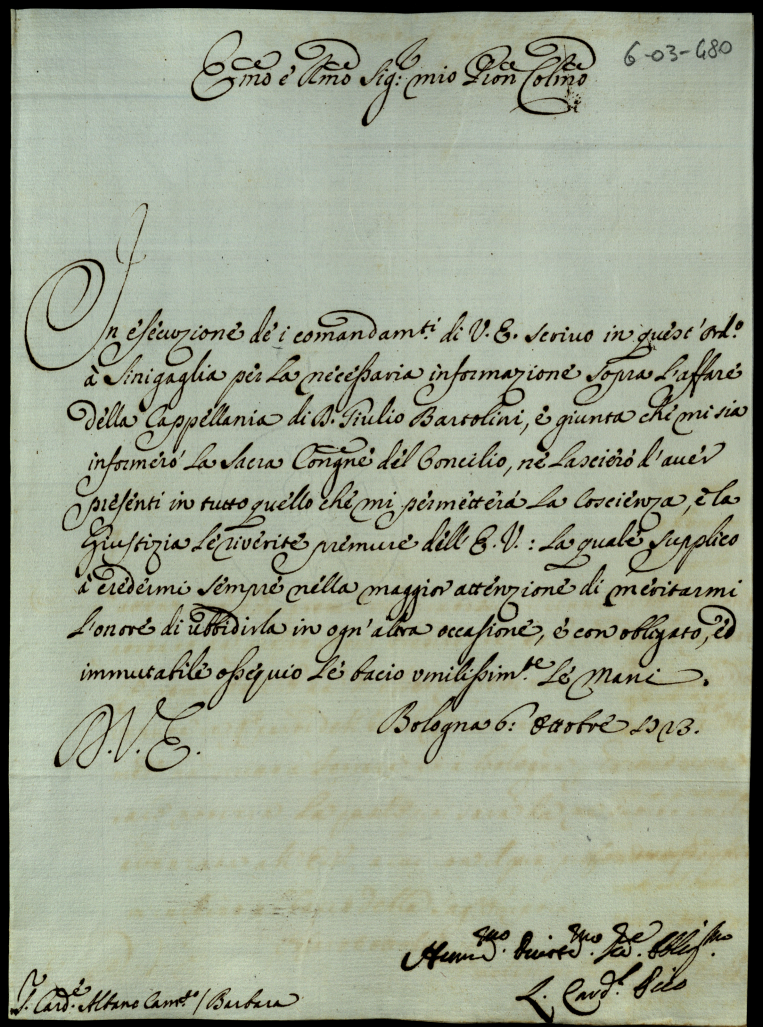 6-03-480
Emo e Rmo Sig: mio Pron Colmo
In esecuzione de' i comandamti. di V. E. scrivo in quest' Ordo.
à Sinigaglia per la necessaria informazione sopra l'affare
della Cappellania di D. Giulio Bartolini, e giunta che mi sia
informerò la Sacra Congne del Concilio, nè lascierò d'aver
presenti in tutto quello che mi permetterà la Coscienza, e la
Giustizia le riverite premure dell' E. V.: la quale supplico
à credermi sempre nella maggior attenzione di meritarmi
l'onore di ubbidirla in ogn' altra occasione, e con obligato, ed
immutabile ossequio le bacio umilissimte. le Mani.
Bologna 6: Ottobre 1723.
D. V. E.
Humo. Divotmo. Obligmo
L. Cardl. Pico
S. Carde. Albano Camto / Barbara